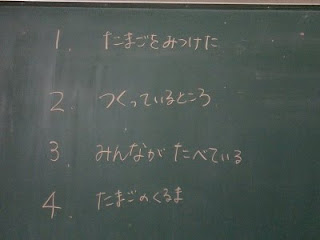 1. たまごをみつけた
2. つくっているところ
3. みんなが たべている
4. たまごのくるま